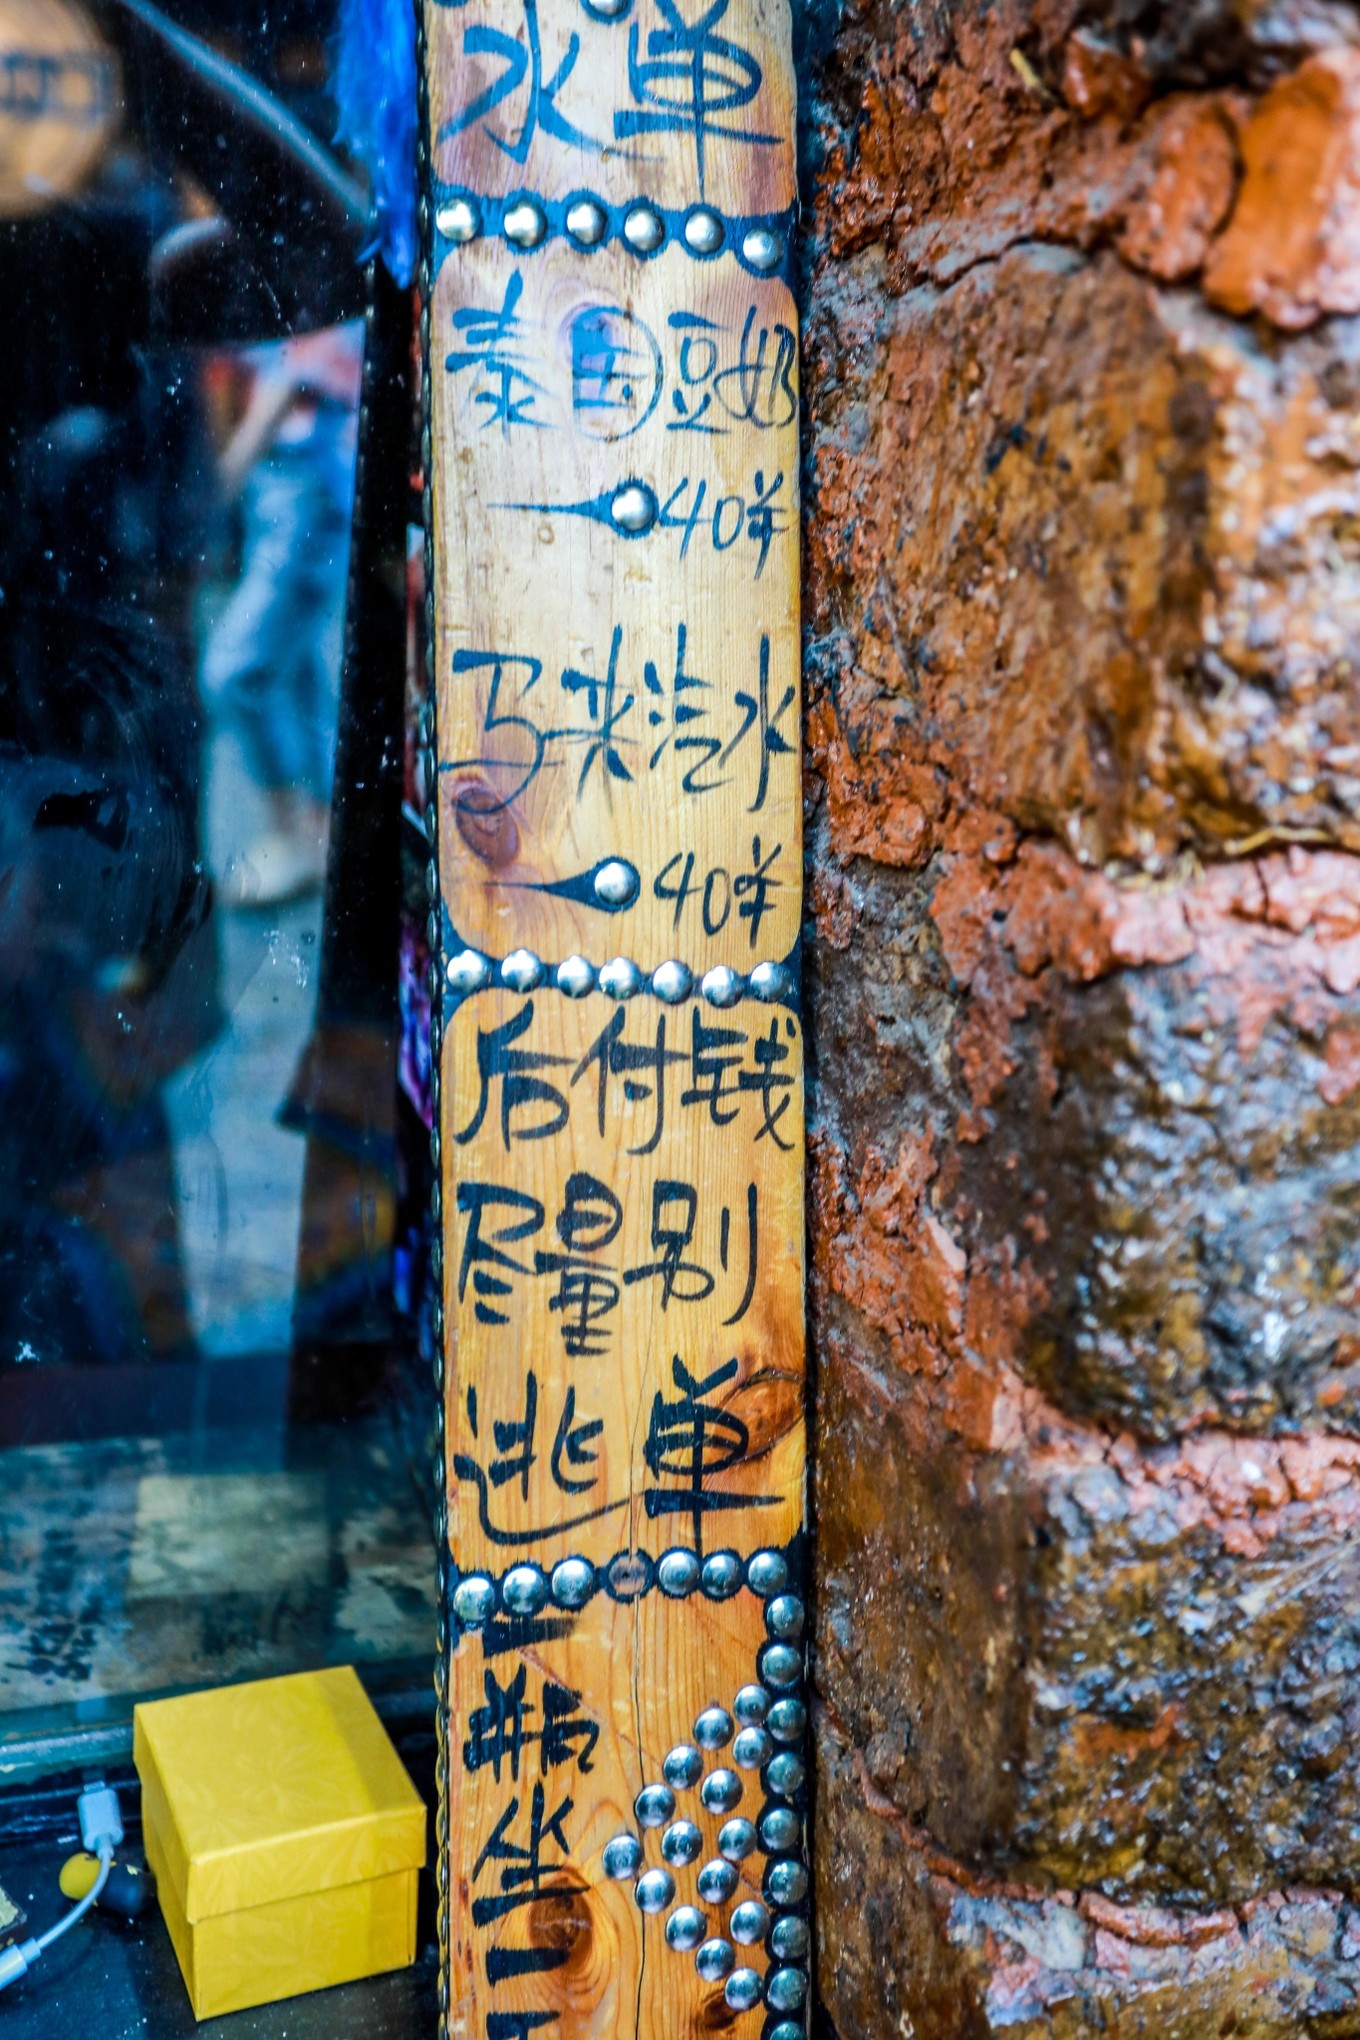 水单
泰国豆奶
40¥
马来汽水
40¥
后付钱
尽量别
逃单
瓶
坐